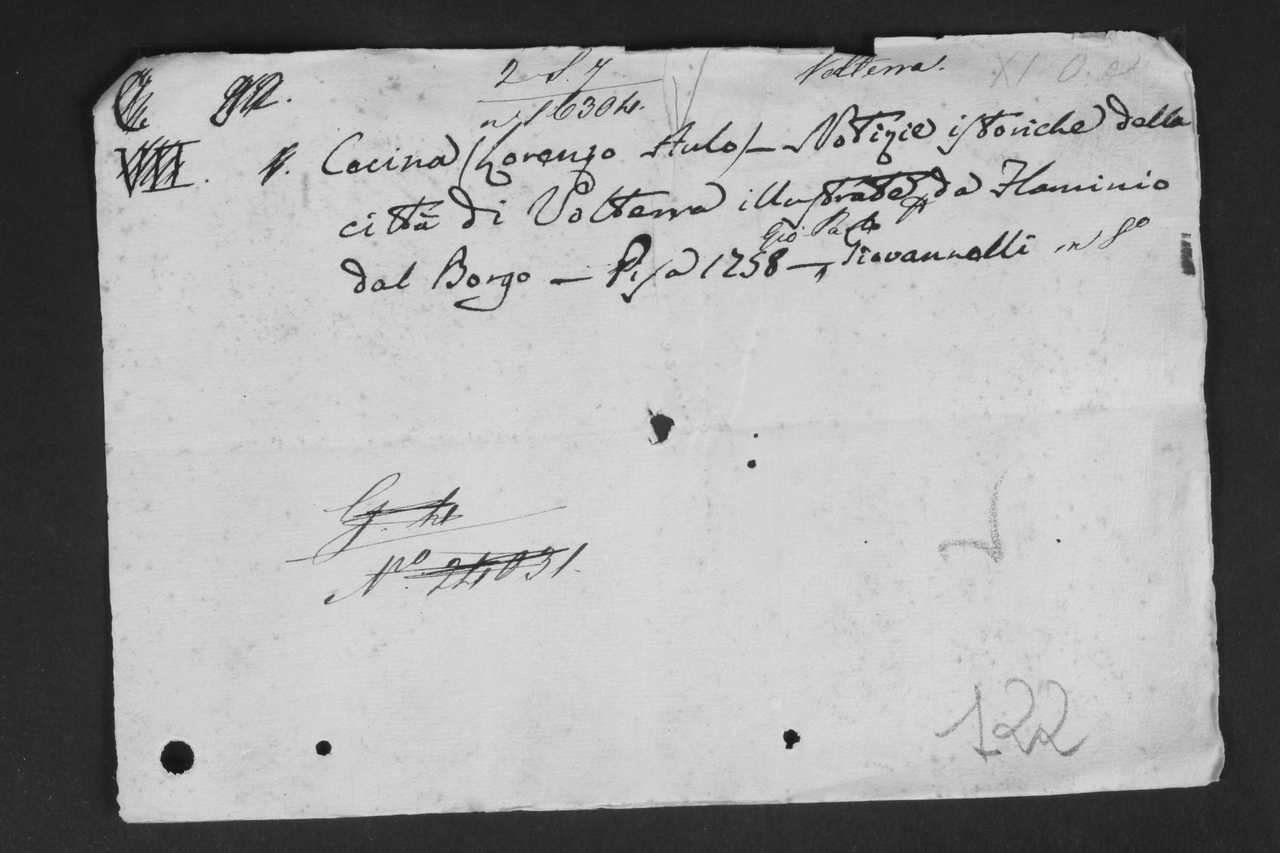 2 S. 7 Volterra.
n 16304.
VIII. Cecina (Lorenzo Aulo) — Notizie istoriche della
città di Volterra illustrate da Flaminio
Gio Paolo
dal Borgo — Pisa 1758 — Giovannelli in 8º
G. 4
Nº. 24031.
122